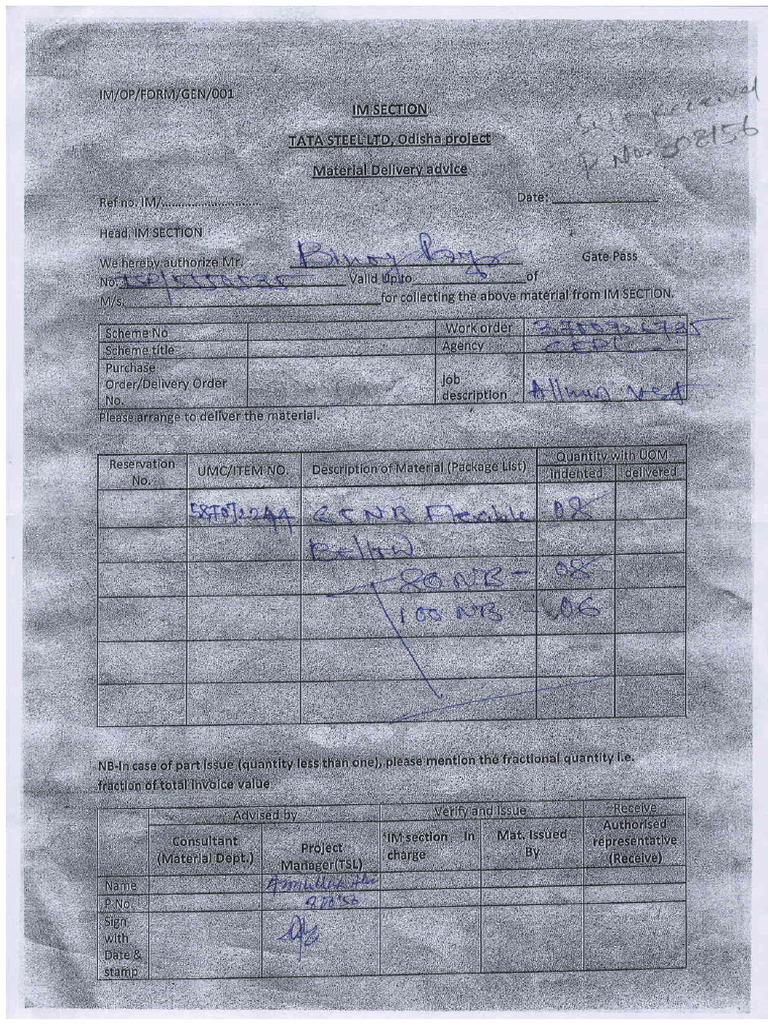 IM/OP/FORM/GEN/001
IM SECTION
TATA STEEL LTD, Odisha project
Material Delivery advice
Received
P No. 302156
Ref no. IM/..............................
Date: ________________
Head, IM SECTION
We hereby authorize Mr. Binoy Gate Pass
No. Valid Up to ________________ of
M/s. ________________ for collecting the above material from IM SECTION.
Scheme No Work order
Scheme title Agency
Purchase Order/Delivery Order No. Job description
Please arrange to deliver the material.
Reservation No. UMC/ITEM NO. Description of Material (Package List) Quantity with UOM
indented delivered
65 NB Flexible 08
Bellow
80 NB - 08
100 NB - 06
NB-In case of part issue (quantity less than one), please mention the fractional quantity i.e.
fraction of total invoice value
Advised by Verify and Issue Receive
Consultant (Material Dept.) Project Manager(TSL) IM section In charge Mat. Issued By Authorised representative (Receive)
Name
P.No.
Sign with Date & stamp